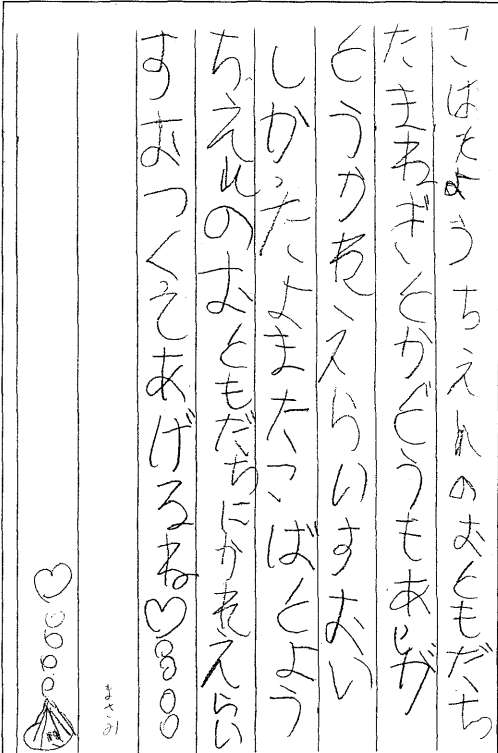 こばとようちえんのおともだち
たまねぎとかどうもありが
とうかれえらいすおい
しかったよまたこばとよう
ちえんのおともだちにかれえらい
すおつくてあげるね♡
まさみ